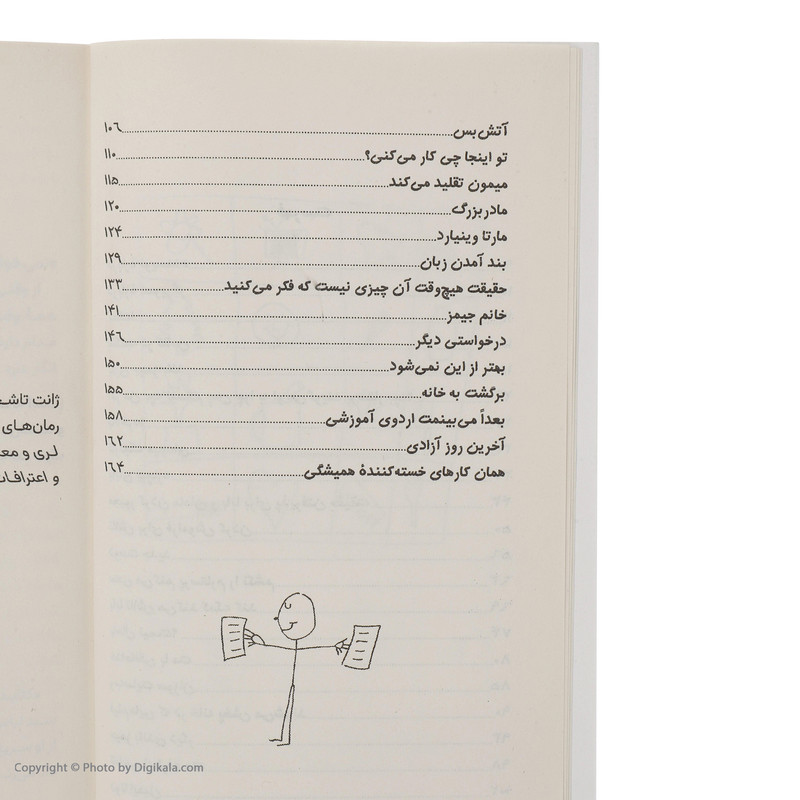 آتش‌بس........۱۰۶
تو اینجا چی کار می‌کنی؟........۱۱۰
میمون تقلید می‌کند........۱۱۵
مادربزرگ........۱۲۰
مارتا وینیارد........۱۲۴
بند آمدن زبان........۱۲۹
حقیقت هیچ‌وقت آن چیزی نیست که فکر می‌کنید........۱۳۳
خانم جیمز........۱۴۱
درخواستی دیگر........۱۴۶
بهتر از این نمی‌شود........۱۵۰
برگشت به خانه........۱۵۵
بعداً می‌بینمت اردوی آموزشی........۱۵۸
آخرین روز آزادی........۱۶۲
همان کارهای خسته‌کنندهٔ همیشگی........۱۶۴
ژانت
رمان‌های
لری و
و
Copyright © Photo by Digikala.com